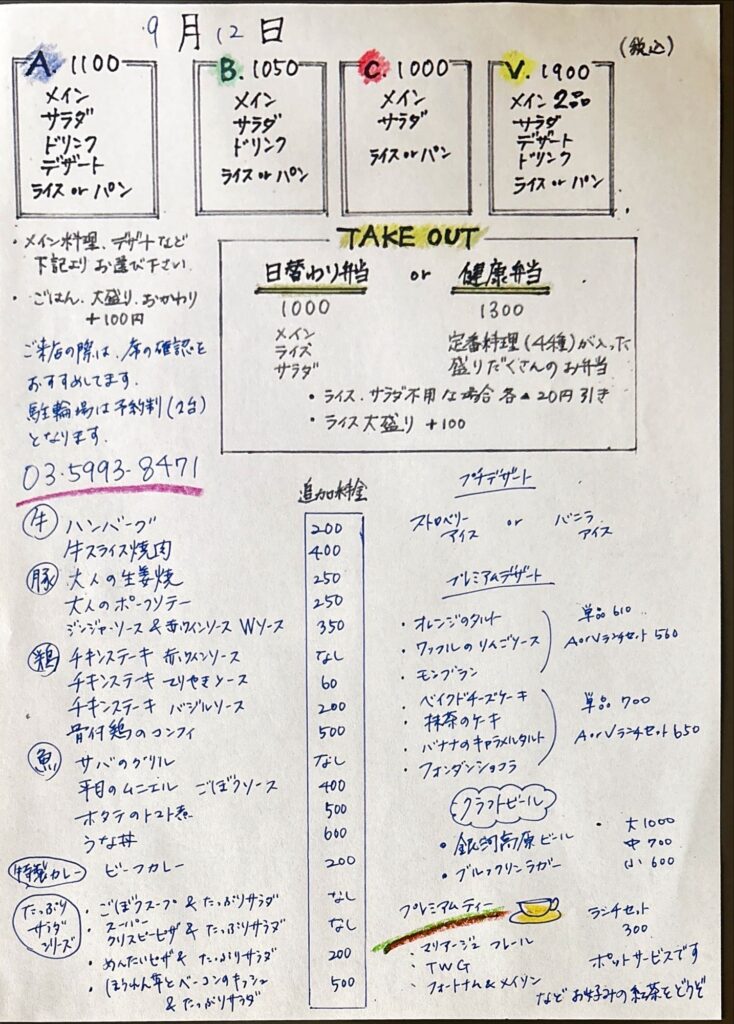 9月12日
(税込)
A. 1100
メイン
サラダ
ドリンク
デザート
ライス or パン
B. 1050
メイン
サラダ
ドリンク
ライス or パン
C. 1000
メイン
サラダ
ライス or パン
V. 1900
メイン 2品
サラダ
デザート
ドリンク
ライス or パン
・メイン料理、デザートなど
下記より お選び下さい
・ごはん、大盛り、おかわり
+100円
ご来店の際は、席の確認を
おすすめしてます。
駐輪場は予約制(2台)
となります。
03-5993-8471
TAKE OUT
日替わり弁当 or 健康弁当
1000
メイン
ライス
サラダ
1300
定番料理(4種)が入った
盛りだくさんのお弁当
・ライス、サラダ不用な場合 各▲20円引き
・ライス大盛り +100
追加料金
牛 ハンバーグ 200
牛スライス焼肉 400
豚 大人の生姜焼 250
大人のポークソテー 250
ジンジャーソース & 赤ワインソース Wソース 350
鶏 チキンステーキ 赤ワインソース なし
チキンステーキ てりやきソース 60
チキンステーキ バジルソース 200
骨付鶏のコンフィ 500
魚 サバのグリル なし
平目のムニエル ごぼうソース 400
ホタテのトマト煮 500
うな丼 600
特製カレー ビーフカレー 200
たっぷり
サラダ
シリーズ
・ごぼうスープ & たっぷりサラダ なし
・スーパー
クリスピーピザ & たっぷりサラダ なし
・めんたいピザ & たっぷりサラダ 200
・ほうれん草とベーコンのキッシュ
& たっぷりサラダ 500
プチデザート
ストロベリー
アイス
or
バニラ
アイス
プレミアムデザート
・オレンジのタルト
・ワッフルのりんごソース
・モンブラン
単品 610
A or V ランチセット 560
・ベイクドチーズケーキ
・抹茶のケーキ
・バナナのキャラメルタルト
・フォンダンショコラ
単品 700
A or V ランチセット 650
クラフトビール
・銀河高原ビール
・ブルックリンラガー
・大1000
中 700
小 600
プレミアムティー
・マリアージュ フレール
・TWG
・フォートナム&メイソン
ランチセット
300
ポットサービスです
など お好みの紅茶をどうぞ